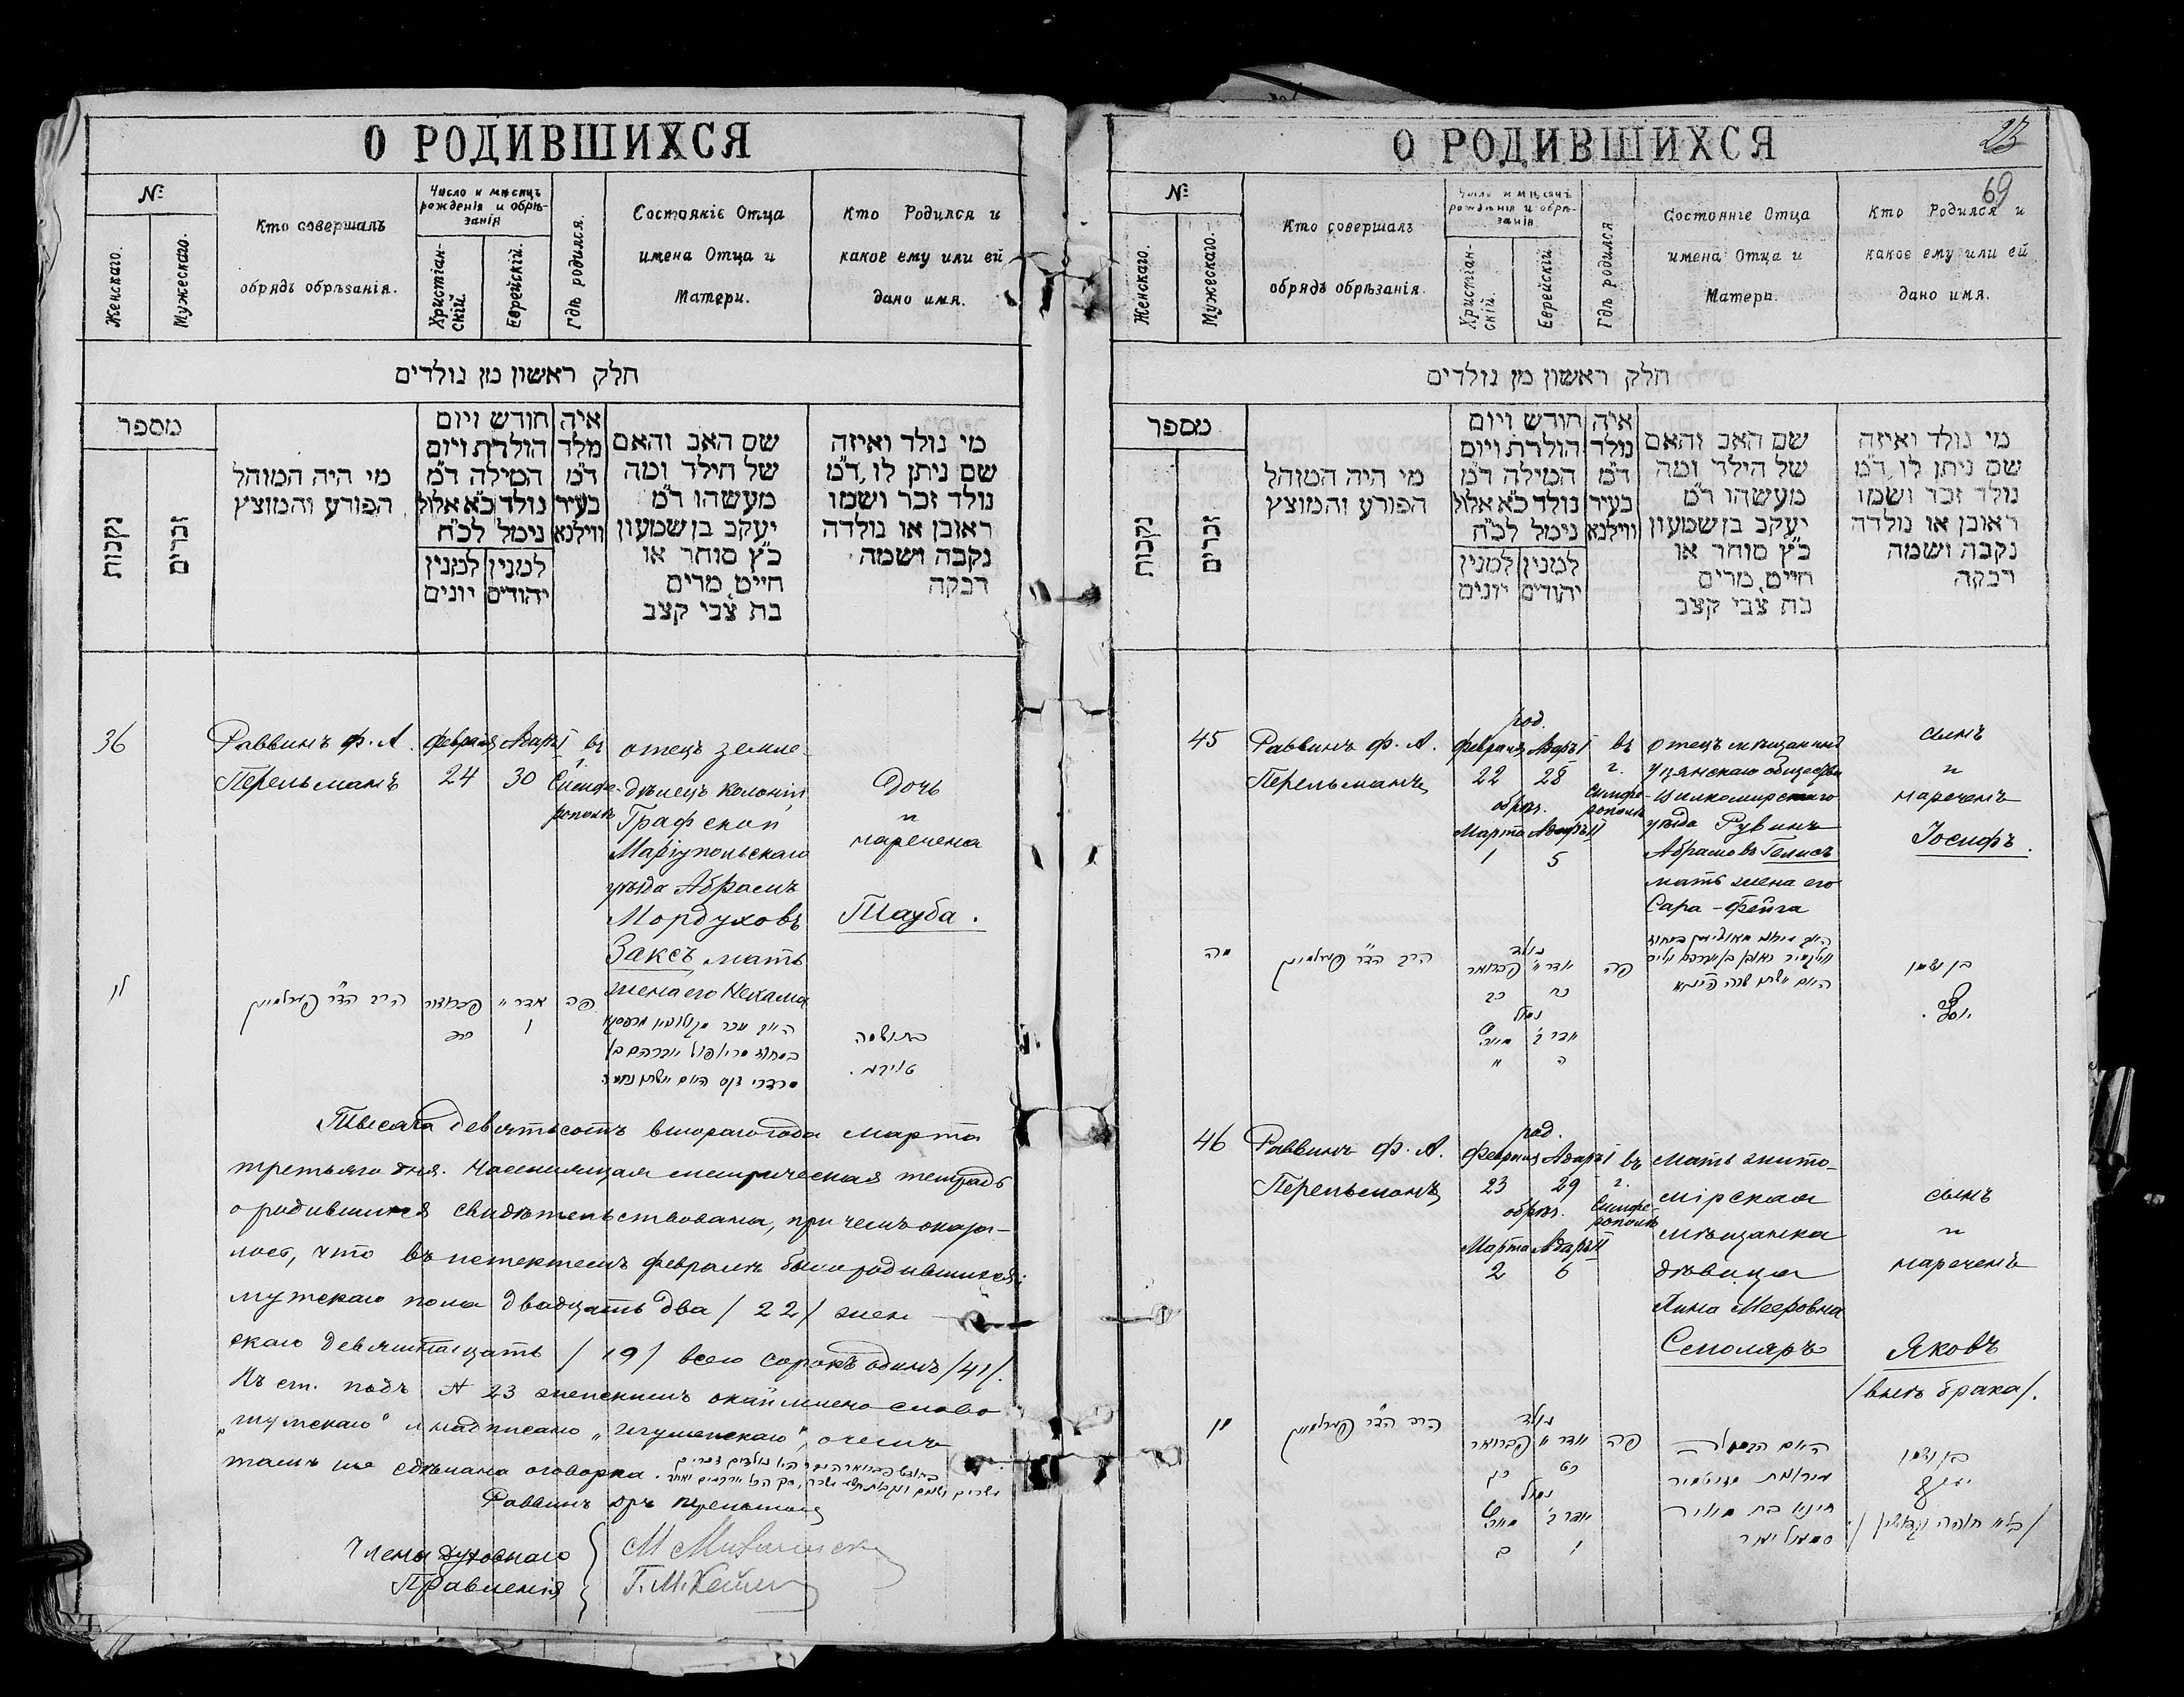 О РОДИВШИХСЯ
№
Женскаго.
Мужескаго.
Кто совершалъ
обрядъ обрѣзанія.
Число и мѣсяцъ
рожденія и обрѣ-
занія
Христіан-
скій.
Еврейскій.
Гдѣ родился.
Состояніе Отца
имена Отца и
Матери.
Кто Родился и
какое ему или ей
дано имя.
חלק ראשון מן נולדים
מספר
נקבות
זכרים
מי היה המוהל
הפורע והמוצץ
חודש ויום
הולדת ויום
המילה ד"מ
נולד כ"א אלול
נימל לכ"ח
למנין למנין
יהודים יונים
איה
מלד
ד"מ
בעיר
ווילנא
שם האב והאם
של הילד ומה
מעשהו ד"מ
יעקב בן שמעון
כ"ץ סוחר או
חייט, מרים
בת צבי קצב
מי נולד ואיזה
שם ניתן לו, ד"מ
נולד זכר ושמו
ראובן או נולדה
נקבה ושמה
רבקה
36
Раввинъ Ф. А.
Перельманъ
Февраля
24
Адаръ I
30
въ
г.
Симфе-
рополѣ
отецъ земле-
дѣлецъ колоніи
Графской
Маріупольскаго
уѣзда Абрамъ
Мордуховъ
Заксъ, мать
жена его Нехама
Дочь
и
наречена
Тауба.
לו
הרב הד"ר פערלמאן
פברואר
כד
אדר
ל
פה
Тысяча девятьсотъ втораго года марта
третьяго дня. Настоящая метрическая тетрадь
о родившихся свидѣтельствована, при чемъ оказа-
лось, что въ истекшемъ февралѣ было родившихся:
мужскаго пола двадцать два / 22 / жен
скаго девятнадцать / 19 / всего сорокъ одинъ / 41 /.
Въ ст. подъ № 23 женскимъ окаймлено слово
„мужскаго“ и надписано „Игуменскаго“, о чемъ
тамъ же сдѣлана оговорка.
Раввинъ дръ Перельманъ
Члены Духовнаго
Правленія
О РОДИВШИХСЯ
23
69
№
Женскаго.
Мужескаго.
Кто совершалъ
обрядъ обрѣзанія.
Число и мѣсяцъ
рожденія и обрѣ-
занія
Христіан-
скій.
Еврейскій.
Гдѣ родился
Состояніе Отца
имена Отца и
Матери.
Кто Родился и
какое ему или ей
дано имя.
חלק ראשון מן נולדים
מספר
נקבות
זכרים
מי היה המוהל
הפורע והמוצץ
חודש ויום
הולדת ויום
המילה ד"מ
נולד כ"א אלול
נימל לכ"ח
למנין למנין
יהודים יונים
איה
נולד
ד"מ
בעיר
ווילנא
שם האב והאם
של הילד ומה
מעשהו ד"מ
יעקב בן שמעון
כ"ץ סוחר או
חייט, מרים
בת צבי קצב
מי נולד ואיזה
שם ניתן לו, ד"מ
נולד זכר ושמו
ראובן או נולדה
נקבה ושמה
רבקה
45
Раввинъ Ф. А.
Перельманъ
род.
Февраля Адаръ I
22 28
обрѣз.
Марта Адаръ II
1 5
въ
г.
Симфе-
рополѣ
Отецъ мѣщанинъ
Уцянскаго общества
Вилкомирскаго
уѣзда Рувинъ
Абрамовъ Гелисъ
мать жена его
Сара-Фейга
сынъ
и
нареченъ
Іосифъ.
מה
הרב הד"ר פערלמאן
נולד
אדר פברואר
כח כב
נמול
אדר ב' מארט
ה א
פה
בן ושמו
יוסף.
46
Раввинъ Ф. А.
Перельманъ
род.
Февраля Адаръ I
23 29
обрѣз.
Марта Адаръ II
2 6
въ
г.
Симфе-
рополѣ
Мать жито-
мірская
мѣщанка
дѣвица
Хина Мееровна
Смоляръ
сынъ
и
нареченъ
Яковъ
/внѣ брака/.
מו
הרב הד"ר פערלמאן
נולד
אדר פברואר
כט כג
נמול
אדר ב' מארט
ו ב
פה
חינא בת מאיר
סמאליאר
בן ושמו
יעקב
/בלי חופה וקדושין/.